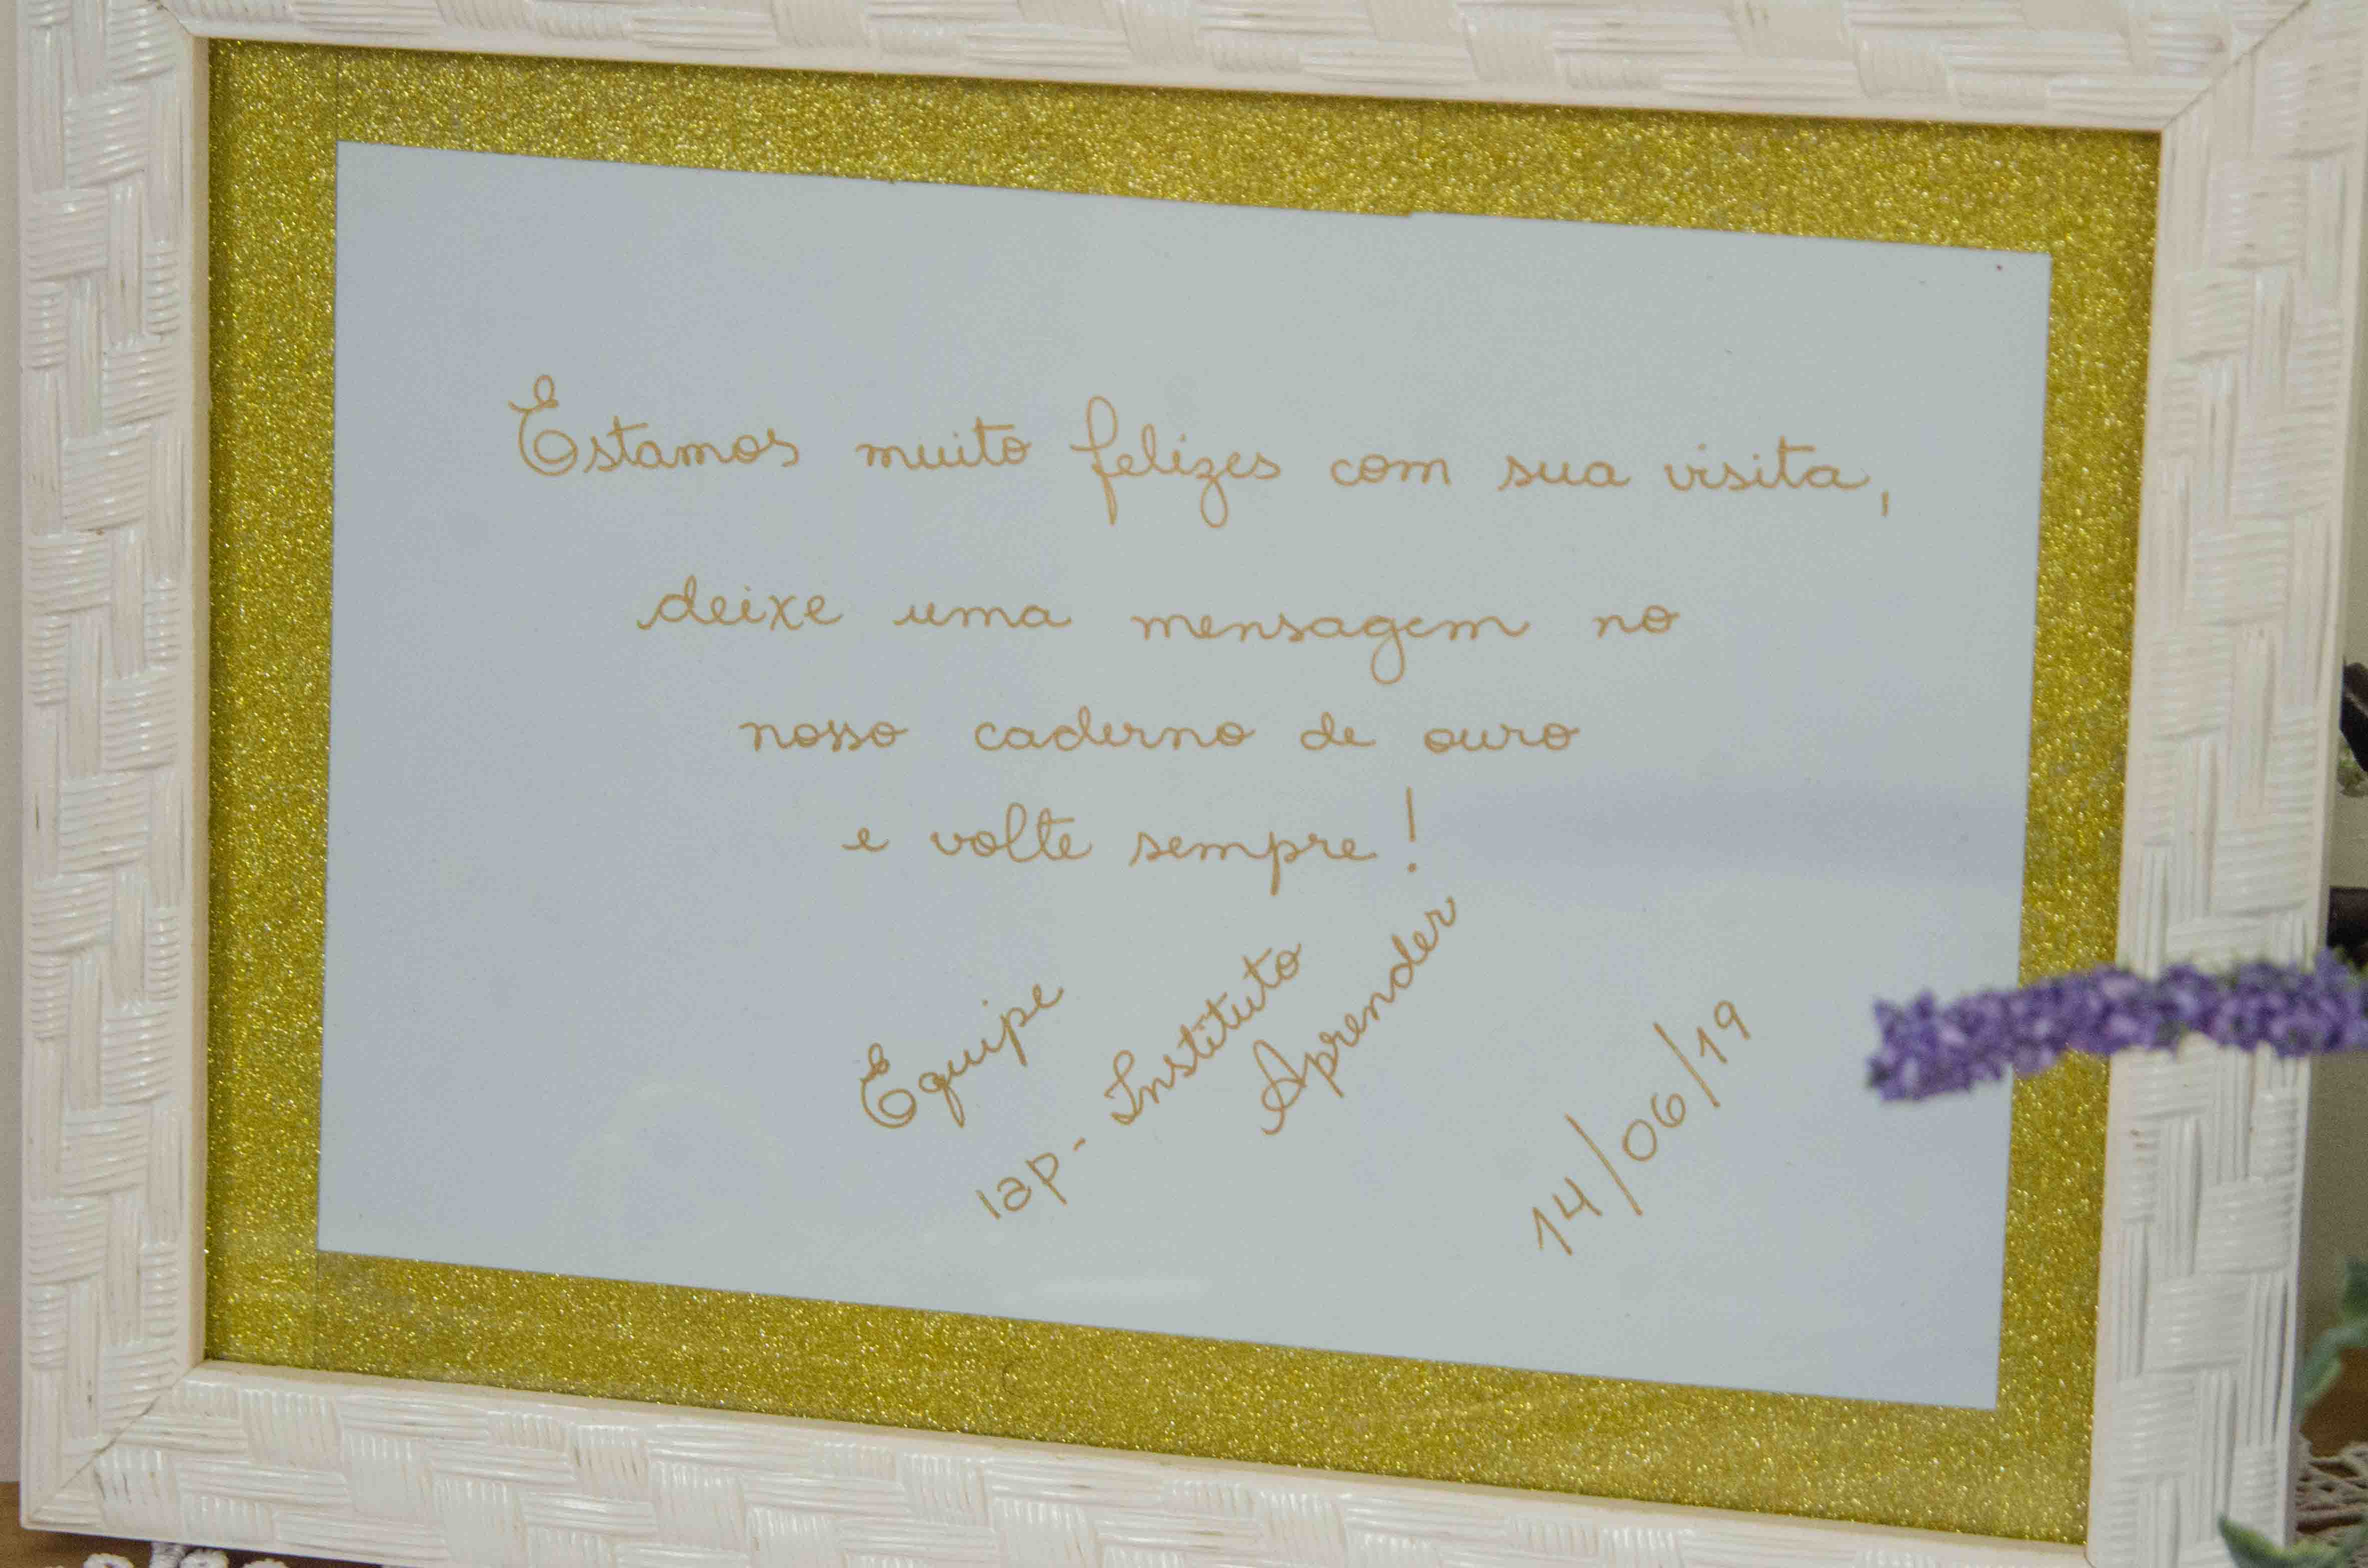 Estamos muito felizes com sua visita,
deixe uma mensagem no
nosso caderno de ouro
e volte sempre!
Equipe
iap - Instituto
Aprender
14/06/19